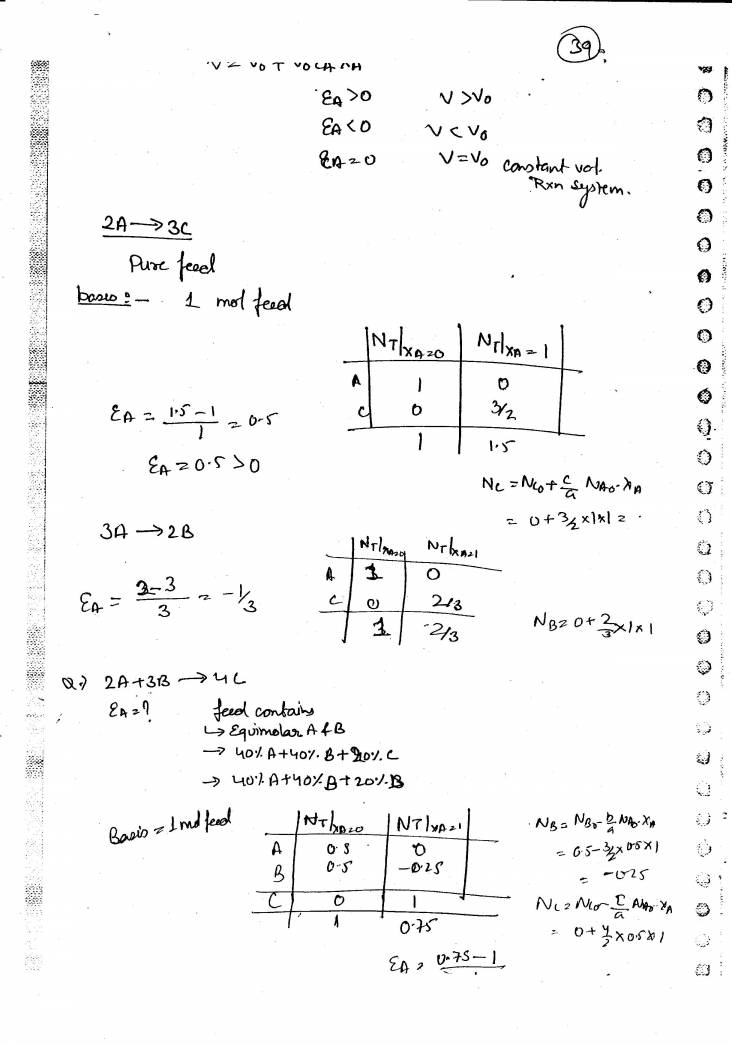 39
εA >0 V >V0
εA <0 V < V0
εA = 0 V = V0 constant vol. Rxn system.
2A → 3C
Pure feed
basis :- 1 mol feed
NT|XA=0 NT|XA=1
A 1 0
C 0 3/2
1 1.5
εA = (1.5-1)/1 = 0.5
εA = 0.5 >0
NC = NC0 + c/a NA0.XA
= 0 + 3/2 ×1×1 =
3A → 2B
NT|XA=0 NT|XA=1
A 1 0
C 0 2/3
1 2/3
εA = (2-3)/3 = -1/3
NB = 0 + 2/3 ×1×1
Q.) 2A+3B → 4C
εA = ? feed contains
↳ Equimolar A & B
→ 40% A+40% B+20% C
→ 40% A+40% B+20% B
Basis = 1 mol feed
NT|XA=0 NT|XA=1
A 0.5 0
B 0.5 -0.25
C 0 1
1 0.75
NB = NB0 - b/a NA0.XA
= 0.5 - 3/2 × 0.5 ×1
= -0.25
NC = NC0 - c/a NA0 XA
= 0 + 4/2 × 0.5 × 1
εA = 0.75-1